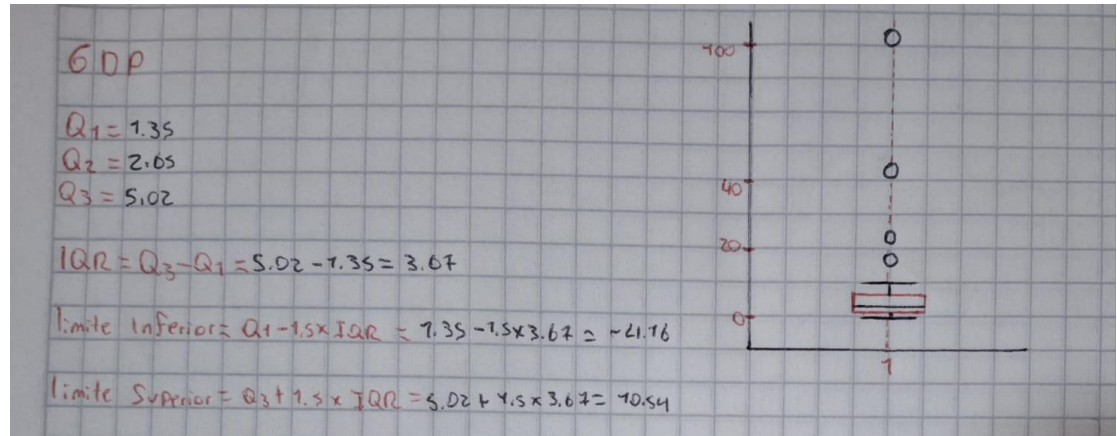 GDP
Q1 = 1.35
Q2 = 2.05
Q3 = 5.02
IQR = Q3-Q1 = 5.02 - 1.35 = 3.67
limite Inferior = Q1-1.5x IQR = 1.35 -1.5x3.67 = -4.16
limite Superior = Q3+1.5x IQR = 5.02 + 1.5x3.67 = 10.54
100
40
20
0
1